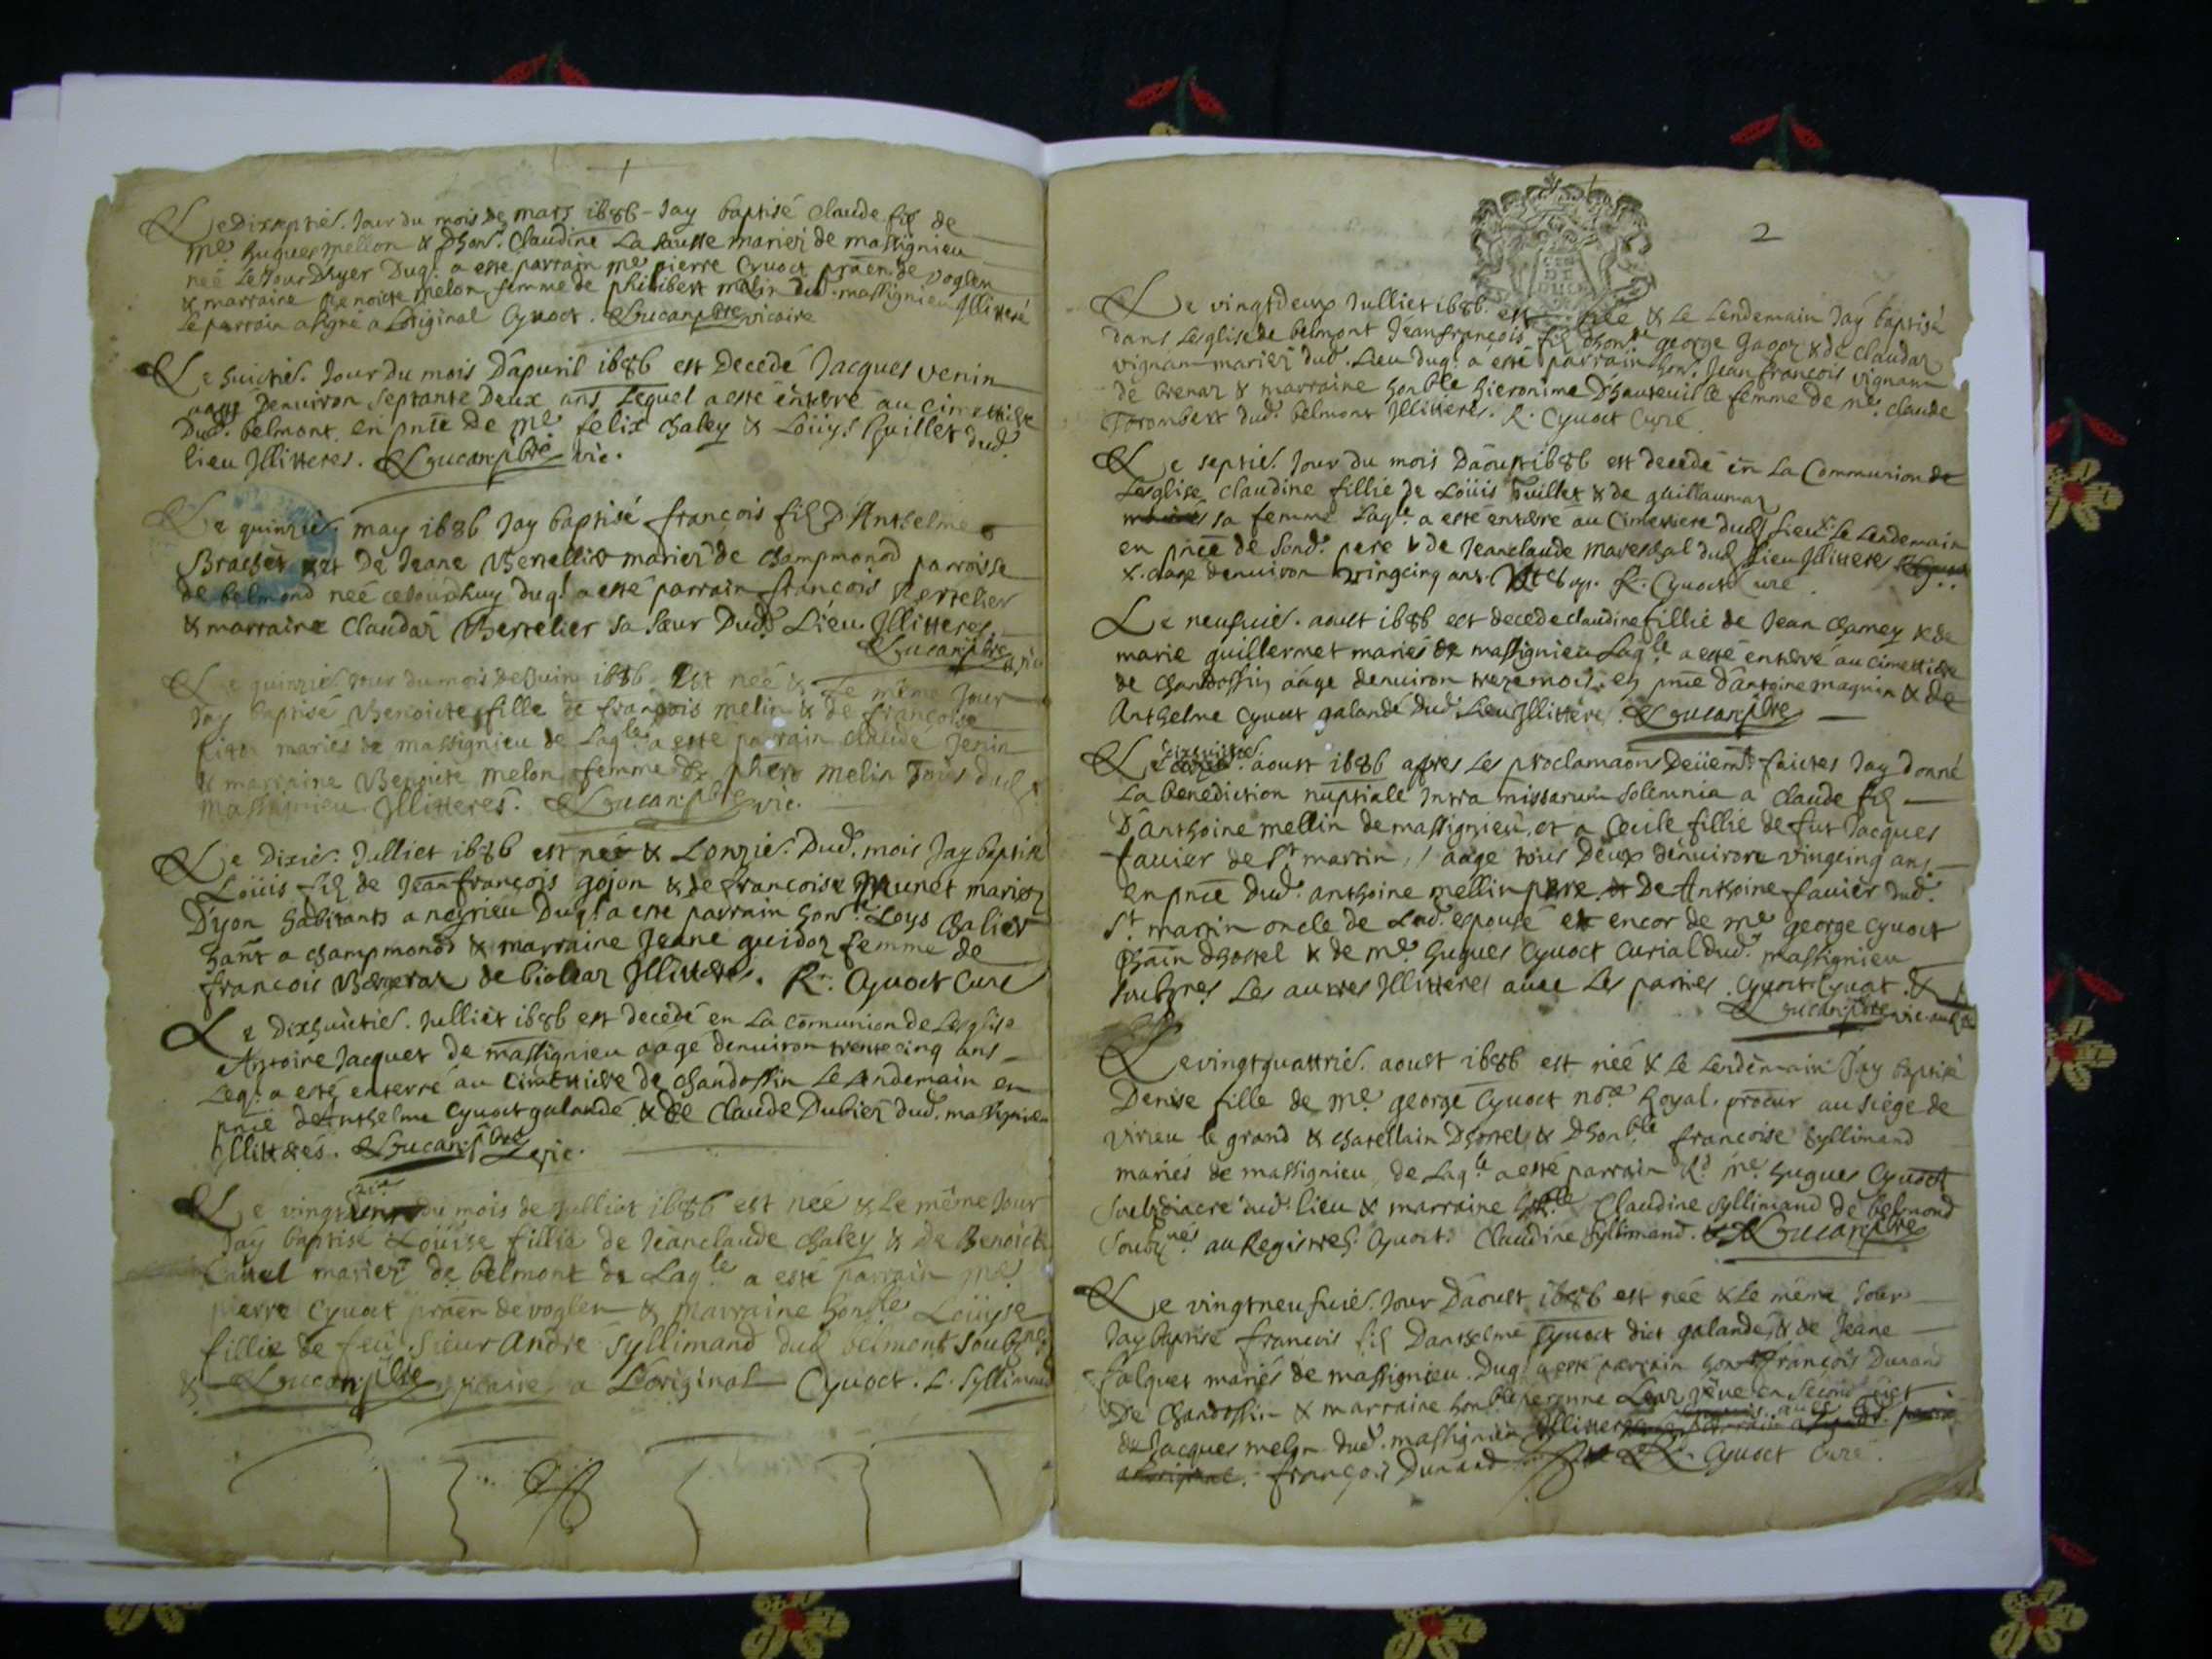 Le Dixseptie. Jour du mois de mars 1686 - Jay baptisé claude fils de
me hugues mellon & dhon. claudine La sausse mariez de massignieu
néé Le Jour Dhyer Duql. a esté parrain me pierre Cyuoct praën. de voglen
& marraine Benoicte melon femme de philibert melin dud. massignieu Jllitteré
Le parrain a signé a Loriginal Cyuoct. Lucan pbre vicaire
Le huictie. Jour du mois Dapuril 1686 est Decedé Jacques venin
aagé Denuiron septante Deux ans Lequel a esté enterré au cimettiere
Dud. belmont en pnce de me felix chaley & Loüys Guillet dud.
lieu Jllitteres. Lucan pbre vic.
Le quinzie. may 1686 Jay baptisé françois fils D'Anthelme
Brachet et De Jeane Bertellier mariez de champmonod parroisse
de belmond néé cejourdhuy duql. a esté parrain francois Bertelier
& marraine Claudaz Bertelier sa sœur Dud. Lieu Jllitteres
Lucan pbre vic
Le quinzie. Jour du mois de Juin 1686. Est néé & Le même Jour
Jay baptisé Benoicte fille de françois melin & de françoise
mariés de massignieu de Laqle. a esté parrain claude Jenin
& marraine Benoicte melon femme de phert melin Tous dud.
massignieu Jllitteres. Lucan pbre vic.
Le Dixie. Julliet 1686 est néé & Lonzie. Dud. mois Jay baptisé
Loüis fils de Jeanfrançois gojon & de francoise Brunet mariez
Dyon habitants a neyrieu Duql. a esté parrain hon. Loys Chalier
hant a champmonod & marraine Jeane guidoz femme de
francois Bergeraz de biolleaz Jllitteres. Rr. Cyuoct Curé
Le Dixhuictie. Julliet 1686 est decedé en La comunion de Lesglise
Antoine Jacquet de massignieu aagé denuiron trentecinq ans
Leql. a esté enterré au cimettiere de chandossin Le Lendemain en
pnce deAnthelme Cyuoct galande & de Claude Dubiez dud. massignieu
Jllitterés. Lucan pbre vic.
Le vingt du mois de Julliet 1686 est néé & Le même Jour
Jay baptisé Loüise fillie de Jeanclaude chaley & de Benoicte
mariez de belmont de Laqle. a esté parrain me
pierre Cyuoct praën de voglen & Marraine honble Loüyse
fillie de feu Sieur André syllimand dud belmont soubznes
& Lucan pbre vicaire a Loriginal Cyuoct. L. Syllimand
2
Le vingtdeux Julliet 1686. est néé & Le Lendemain Jay baptisé
dans Lesglise de belmont Jeanfrançois fils dhon. george Gagoz & de claudaz
vignam mariez dud. Lieu duql. a esté parrain hon. Jean françois vignam
de brenaz & marraine honble hieronime Dhauteuille femme de me. claude
Torombert dud. belmont Jllitteres. R. Cyuoct Curé
Le septie. Jour du mois Daoust 1686 est decedé en La Communion de
Lesglise claudine fillie de Loüis Guillet & de guillaumaz
sa femme Laqle. a esté enterré au Cimettiere dud Lieu Le Lendemain
en pnce de sond. pere & de Jeanclaude mareschal dud Lieu Jllitteres
& aagé denuiron vingcinq ans. R. Cyuoct Curé.
Le neufuie. aoust 1686 est decedé claudine fillie de Jean charney & de
marie guillermet mariés de massignieu Laqle. a esté enterré au cimettiere
de chandossin aagé denuiron treze mois, en pnce d'antoine magnin & de
Anthelme Cyuoct galande dud. Lieu Jllitteré. Lucan pbre
Le dixhuictie. aoust 1686 apres Les proclamaons Deüemt. faictes Jay donné
La benediction nuptiale Intra missarum solemnia a claude fils
D'anthoine mellin de massignieu, et a Cecile fillie de fut Jacques
fauier de St martin, aagé tous Deux denuiron vingcinq ans
en pnce dud. anthoine mellin pere & De Anthoine fauier dud.
St. martin oncle de Lad. espouse et encor de me george cyuoct
chain dhostel & de me. hugues Cyuoct Curial dud. massignieu
soubznes Les autres Jllitteres auec Les parties. Cyuoct Cyuoct. &
Lucan pbre vic.
Le vingtquattrie. aoust 1686 est néé & Le Lendemain Jay baptisé
Denise fille de me. george Cyuoct nore Royal. procur au siége de
virieu le grand & chatellain Dhostel & Dhonble francoise syllimand
mariés de massignieu, de Laqle a esté parrain Rd me. hugues Cyuoct
soubdiacre dud. lieu & marraine honble Claudine syllimand de belmond
soubznés au Registre. Cyuoct. Claudine syllimand. & Lucan pbre
Le vingtneufuie. Jour Daoust 1686 est néé & Le même Jour
Jay baptisé francois fils Danthelme Cyuoct dict galande, & de Jeane
falquet mariés de massignieu. Duql. a esté parrain hon. françois Durand
De chandossin & marraine honble perronne Leaz veue en second lict
de Jacques melon dud. massignieu Jllitteres
françois Durand R. Cyuoct Curé.